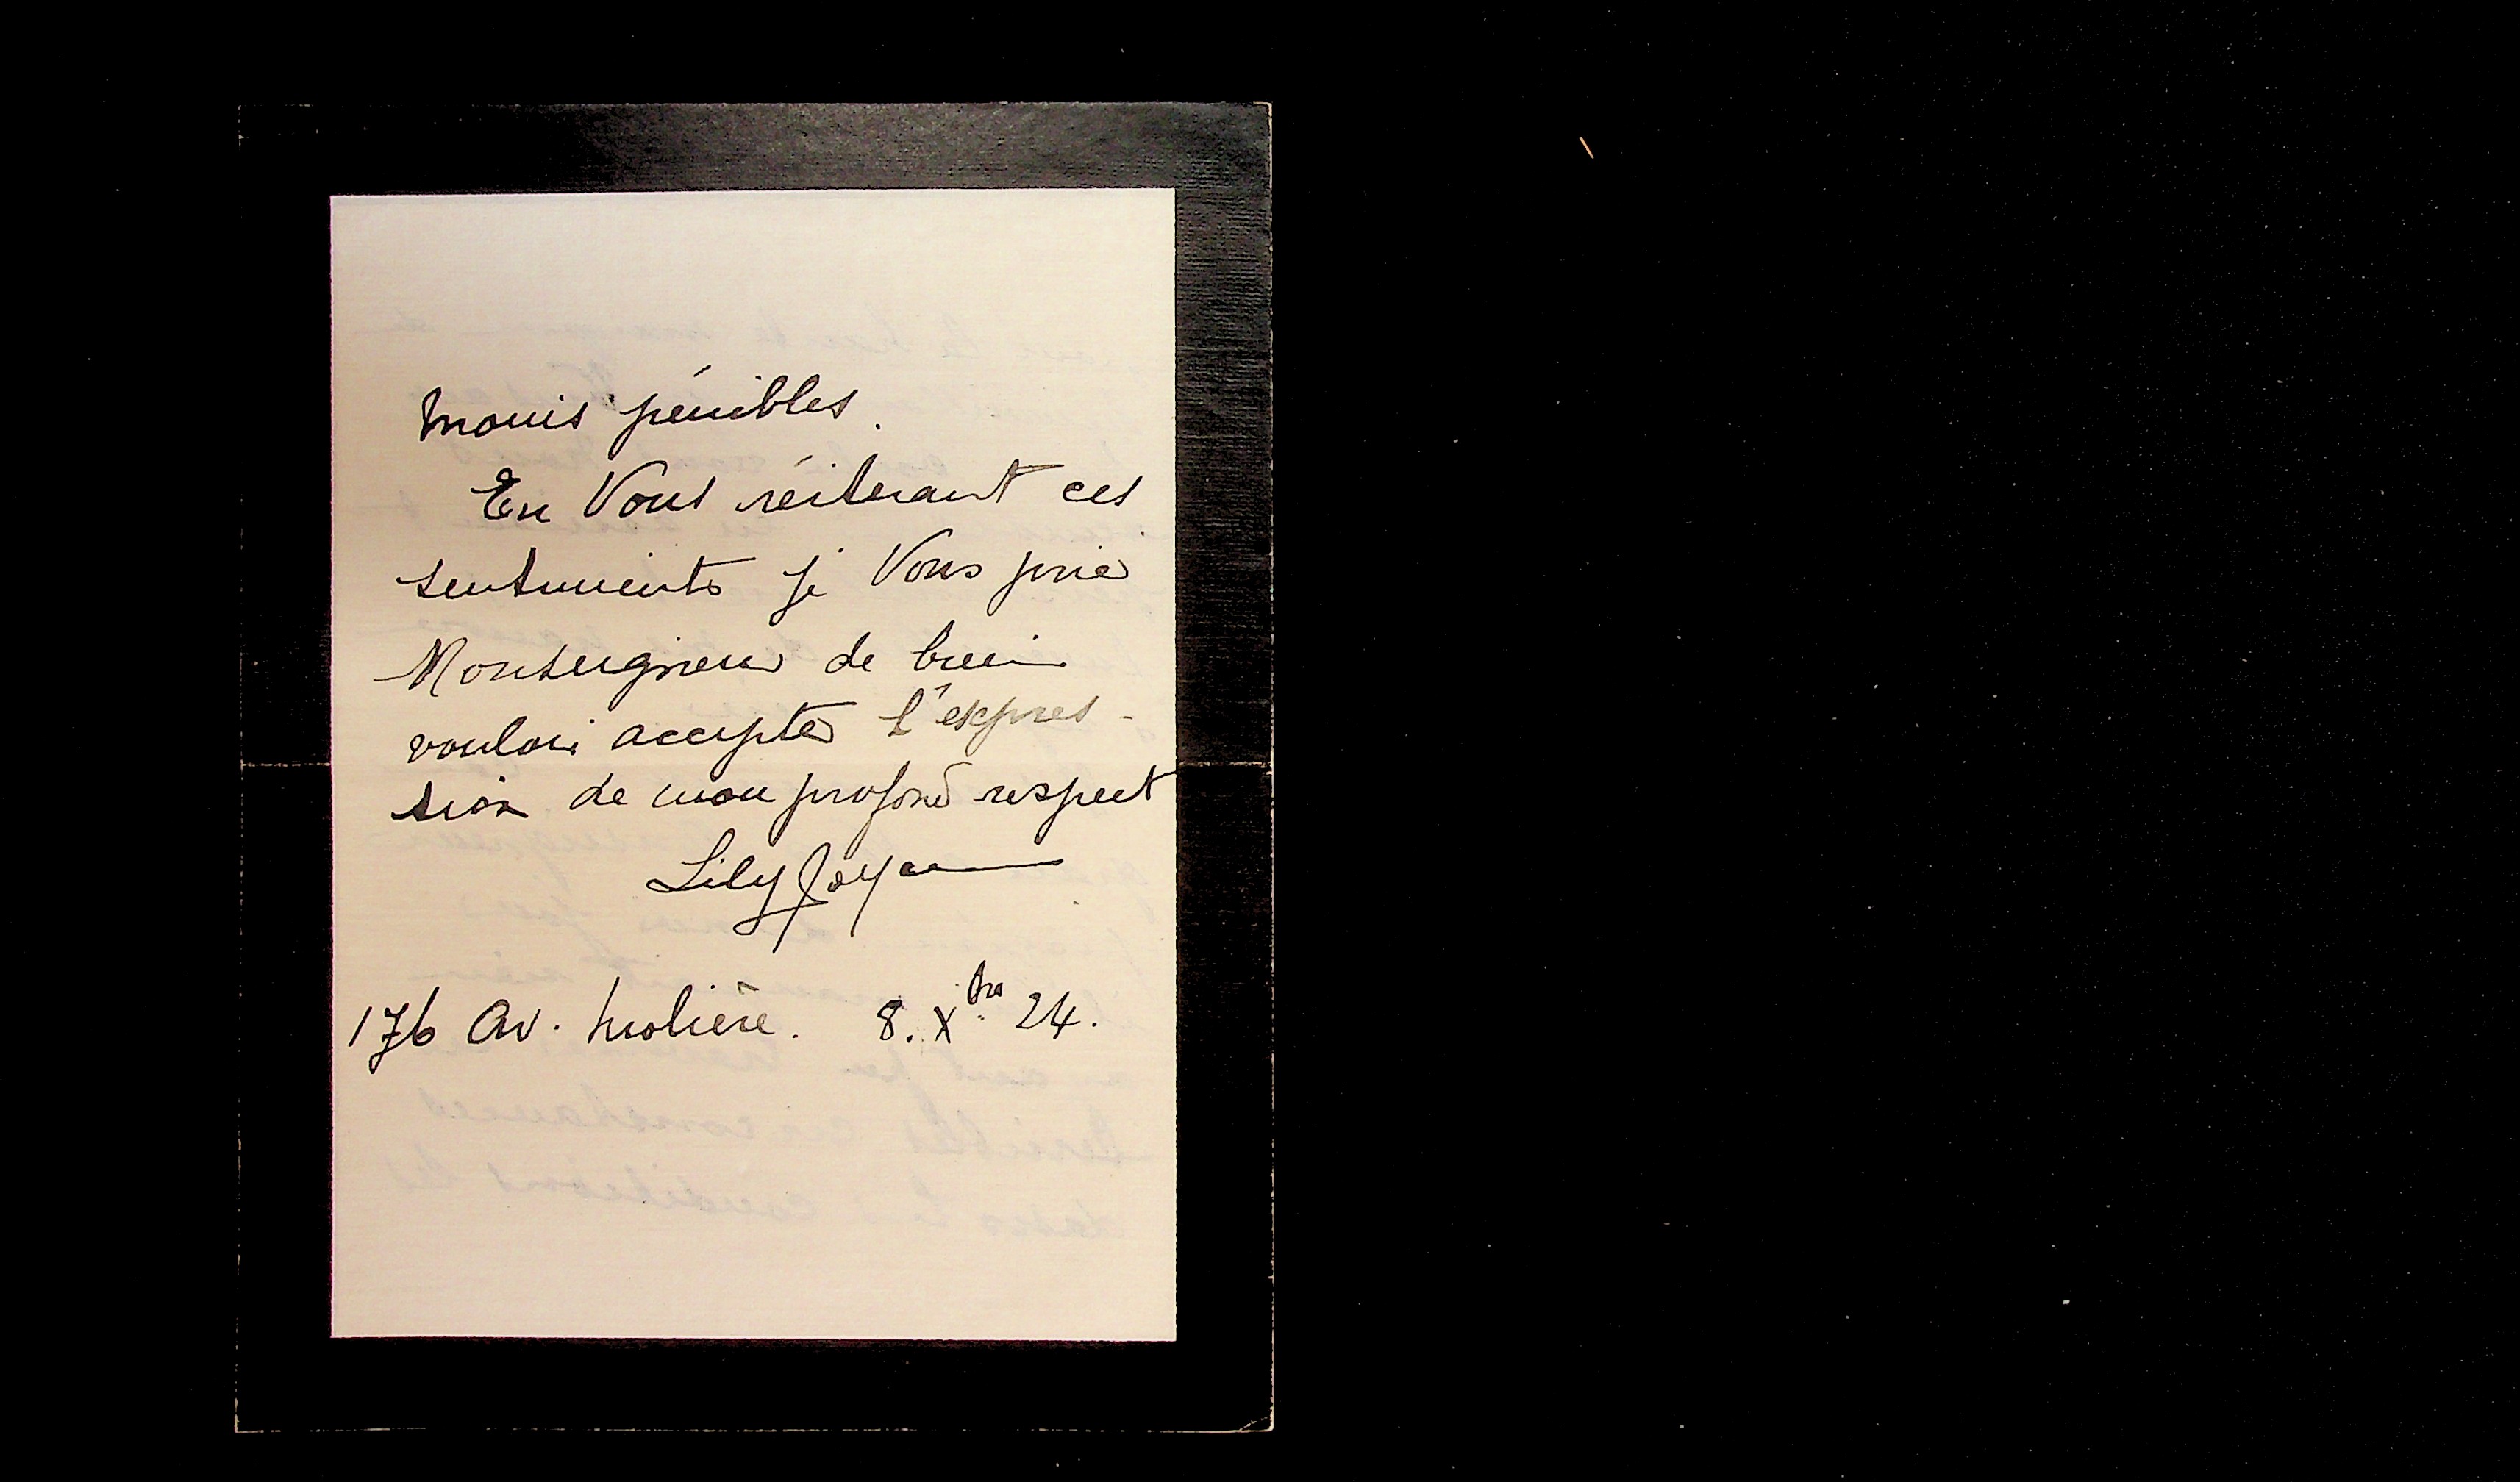 moins pénibles.
En Vous réiterant ces
sentiments je Vous prie
Monseigneur de bien
vouloir accepter l'expres-
sion de mon profond respect
Lily
176 Av. Molière. 8. Xbre 24.